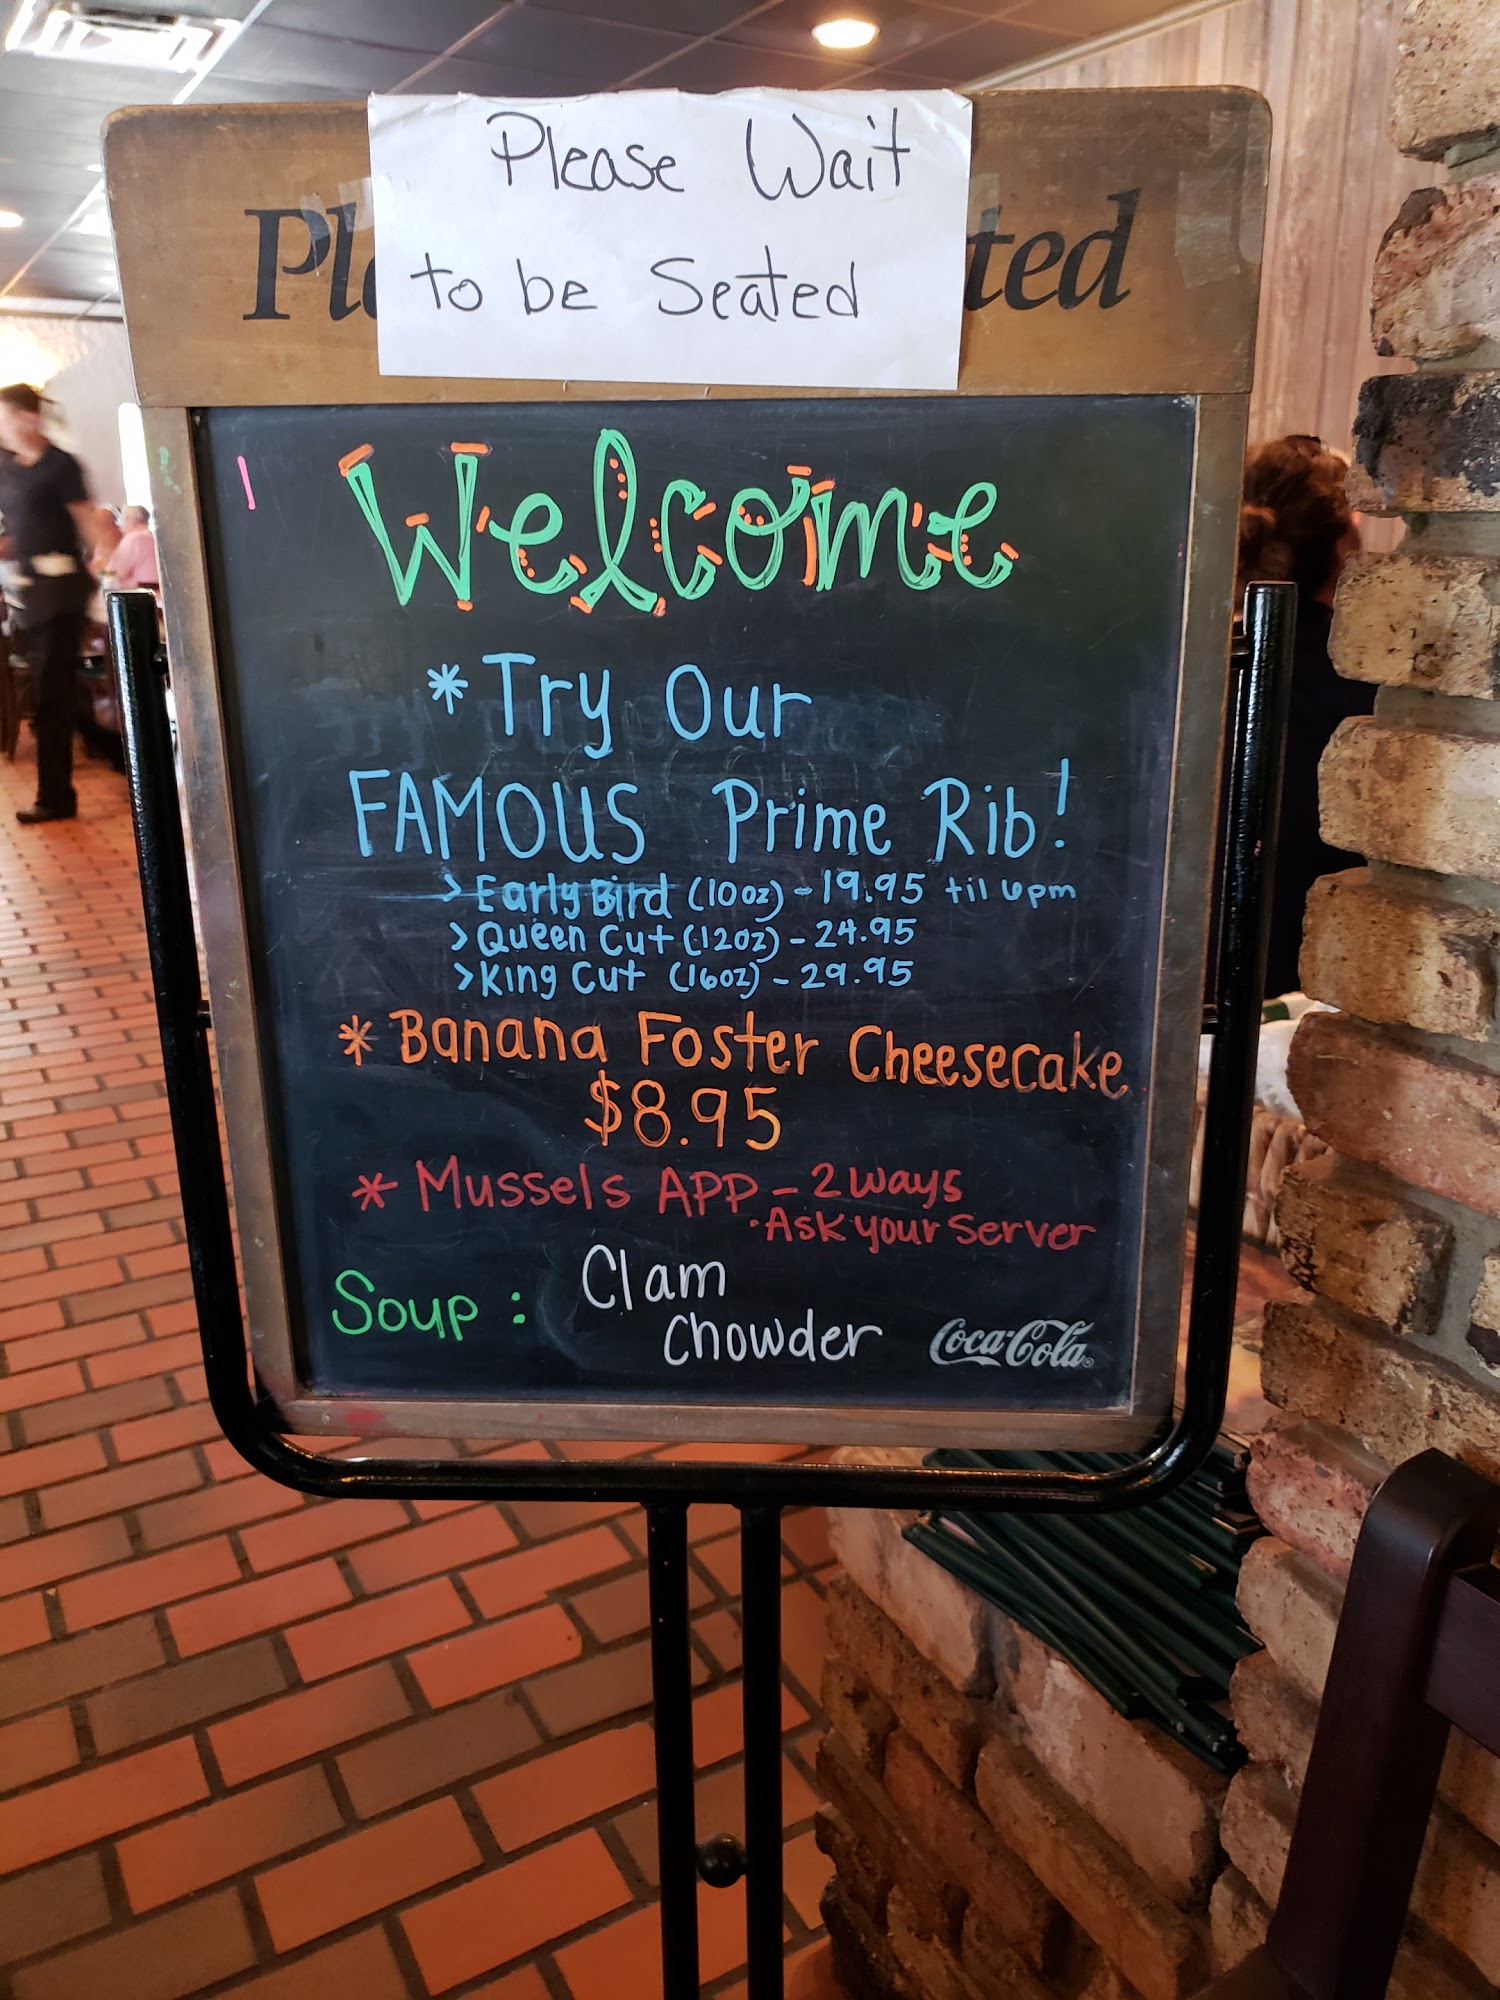 Please Wait
to be Seated
Pl ted
Welcome
* Try Our
FAMOUS Prime Rib!
> Early Bird (10oz) - 19.95 til 6pm
> Queen Cut (12oz) - 24.95
> King Cut (16oz) - 29.95
* Banana Foster Cheesecake
$8.95
* Mussels APP - 2 ways
· Ask your Server
Soup : Clam
Chowder
Coca-Cola®